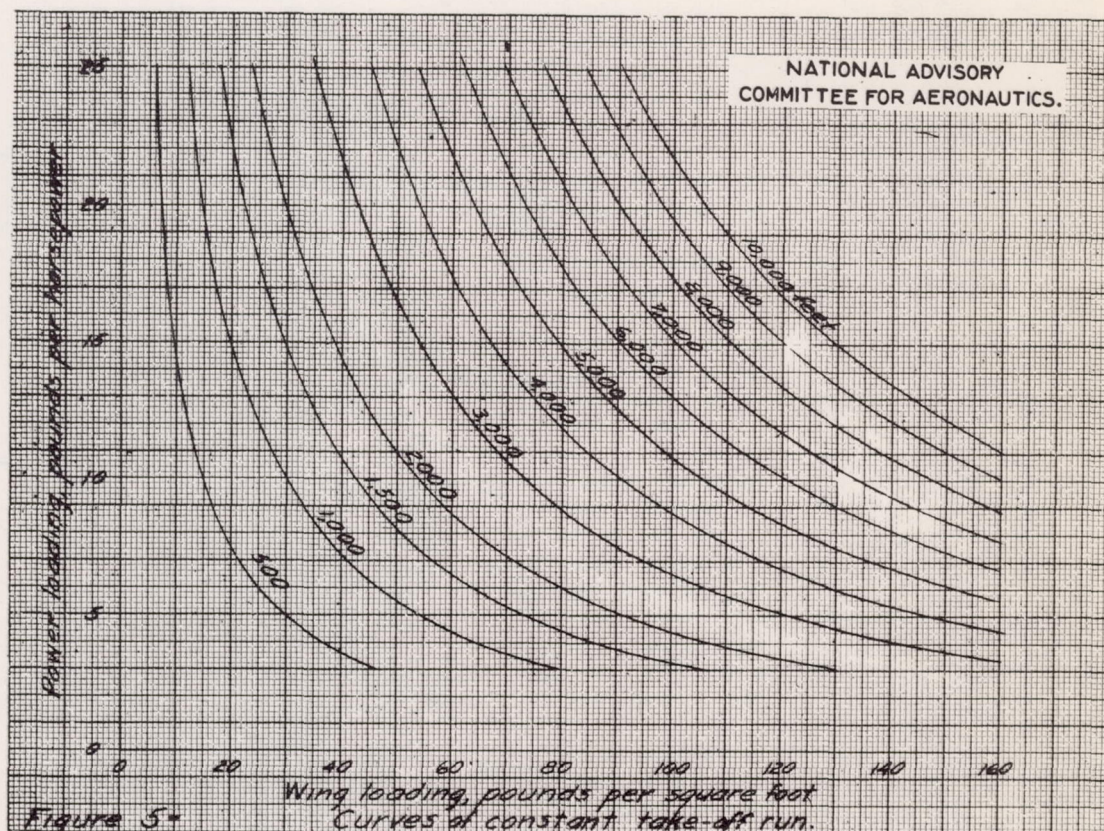 NATIONAL ADVISORY
COMMITTEE FOR AERONAUTICS.
Power loading, pounds per horsepower
25
20
15
10
5
0
10,000 feet
9,000
8,000
7,000
6,000
5,000
4,000
3,000
2,000
1,500
1,000
500
0 20 40 60 80 100 120 140 160
Wing loading, pounds per square foot
Figure 5- Curves of constant take-off run.